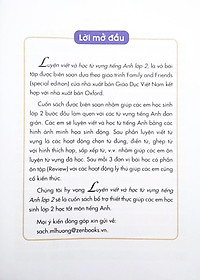 Lời mở đầu
Luyện viết và học từ vựng tiếng Anh lớp 2, là vở bài
tập được biên soạn dựa theo giáo trình Family and Friends
(special edition) của nhà xuất bản Giáo Dục Việt Nam kết
hợp với nhà xuất bản Oxford.
Cuốn sách được biên soạn nhằm giúp các em học sinh
lớp 2 bước đầu làm quen với các từ vựng tiếng Anh đơn
giản. Các em sẽ luyện viết và học từ vựng tiếng Anh bằng các
hình ảnh minh họa sinh động. Sau phần luyện viết từ
vựng là các hoạt động chọn từ đúng, điền từ, ghép từ
với hình thích hợp, sắp xếp từ, v.v. nhằm giúp các em ôn
luyện từ vựng đã học. Sau mỗi 3 đơn vị bài học có phần
ôn tập (Review) với các hoạt động lý thú giúp các em củng
cố kiến thức.
Chúng tôi hy vọng Luyện viết và học từ vựng tiếng
Anh lớp 2 sẽ là cuốn sách bổ trợ thiết thực giúp các em học
sinh lớp 2 học tốt môn tiếng Anh.
Mọi ý kiến đóng góp xin gửi về:
sach.mlhuong@zenbooks.vn.